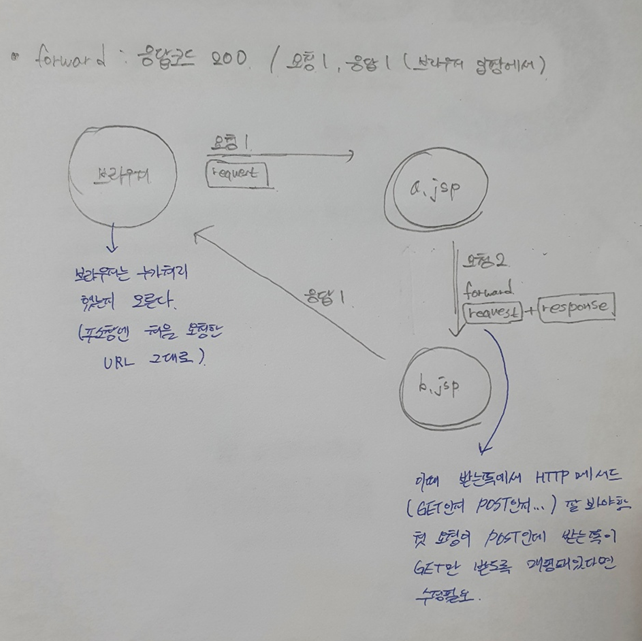 • forward : 응답코드 200. / 요청1, 응답1 (브라우저 입장에서)
브라우저
요청1
request
a.jsp
요청2
forward
request + response
응답1
b.jsp
브라우저는 누가처리
했는지 모른다.
(주소창엔 처음 요청한
URL 그대로)
이때 받는쪽에서 HTTP 메서드
(GET인지 POST인지...) 잘 봐야함
첫 요청이 POST인데 받는쪽이
GET만 받도록 매핑돼있다면
수정필요.